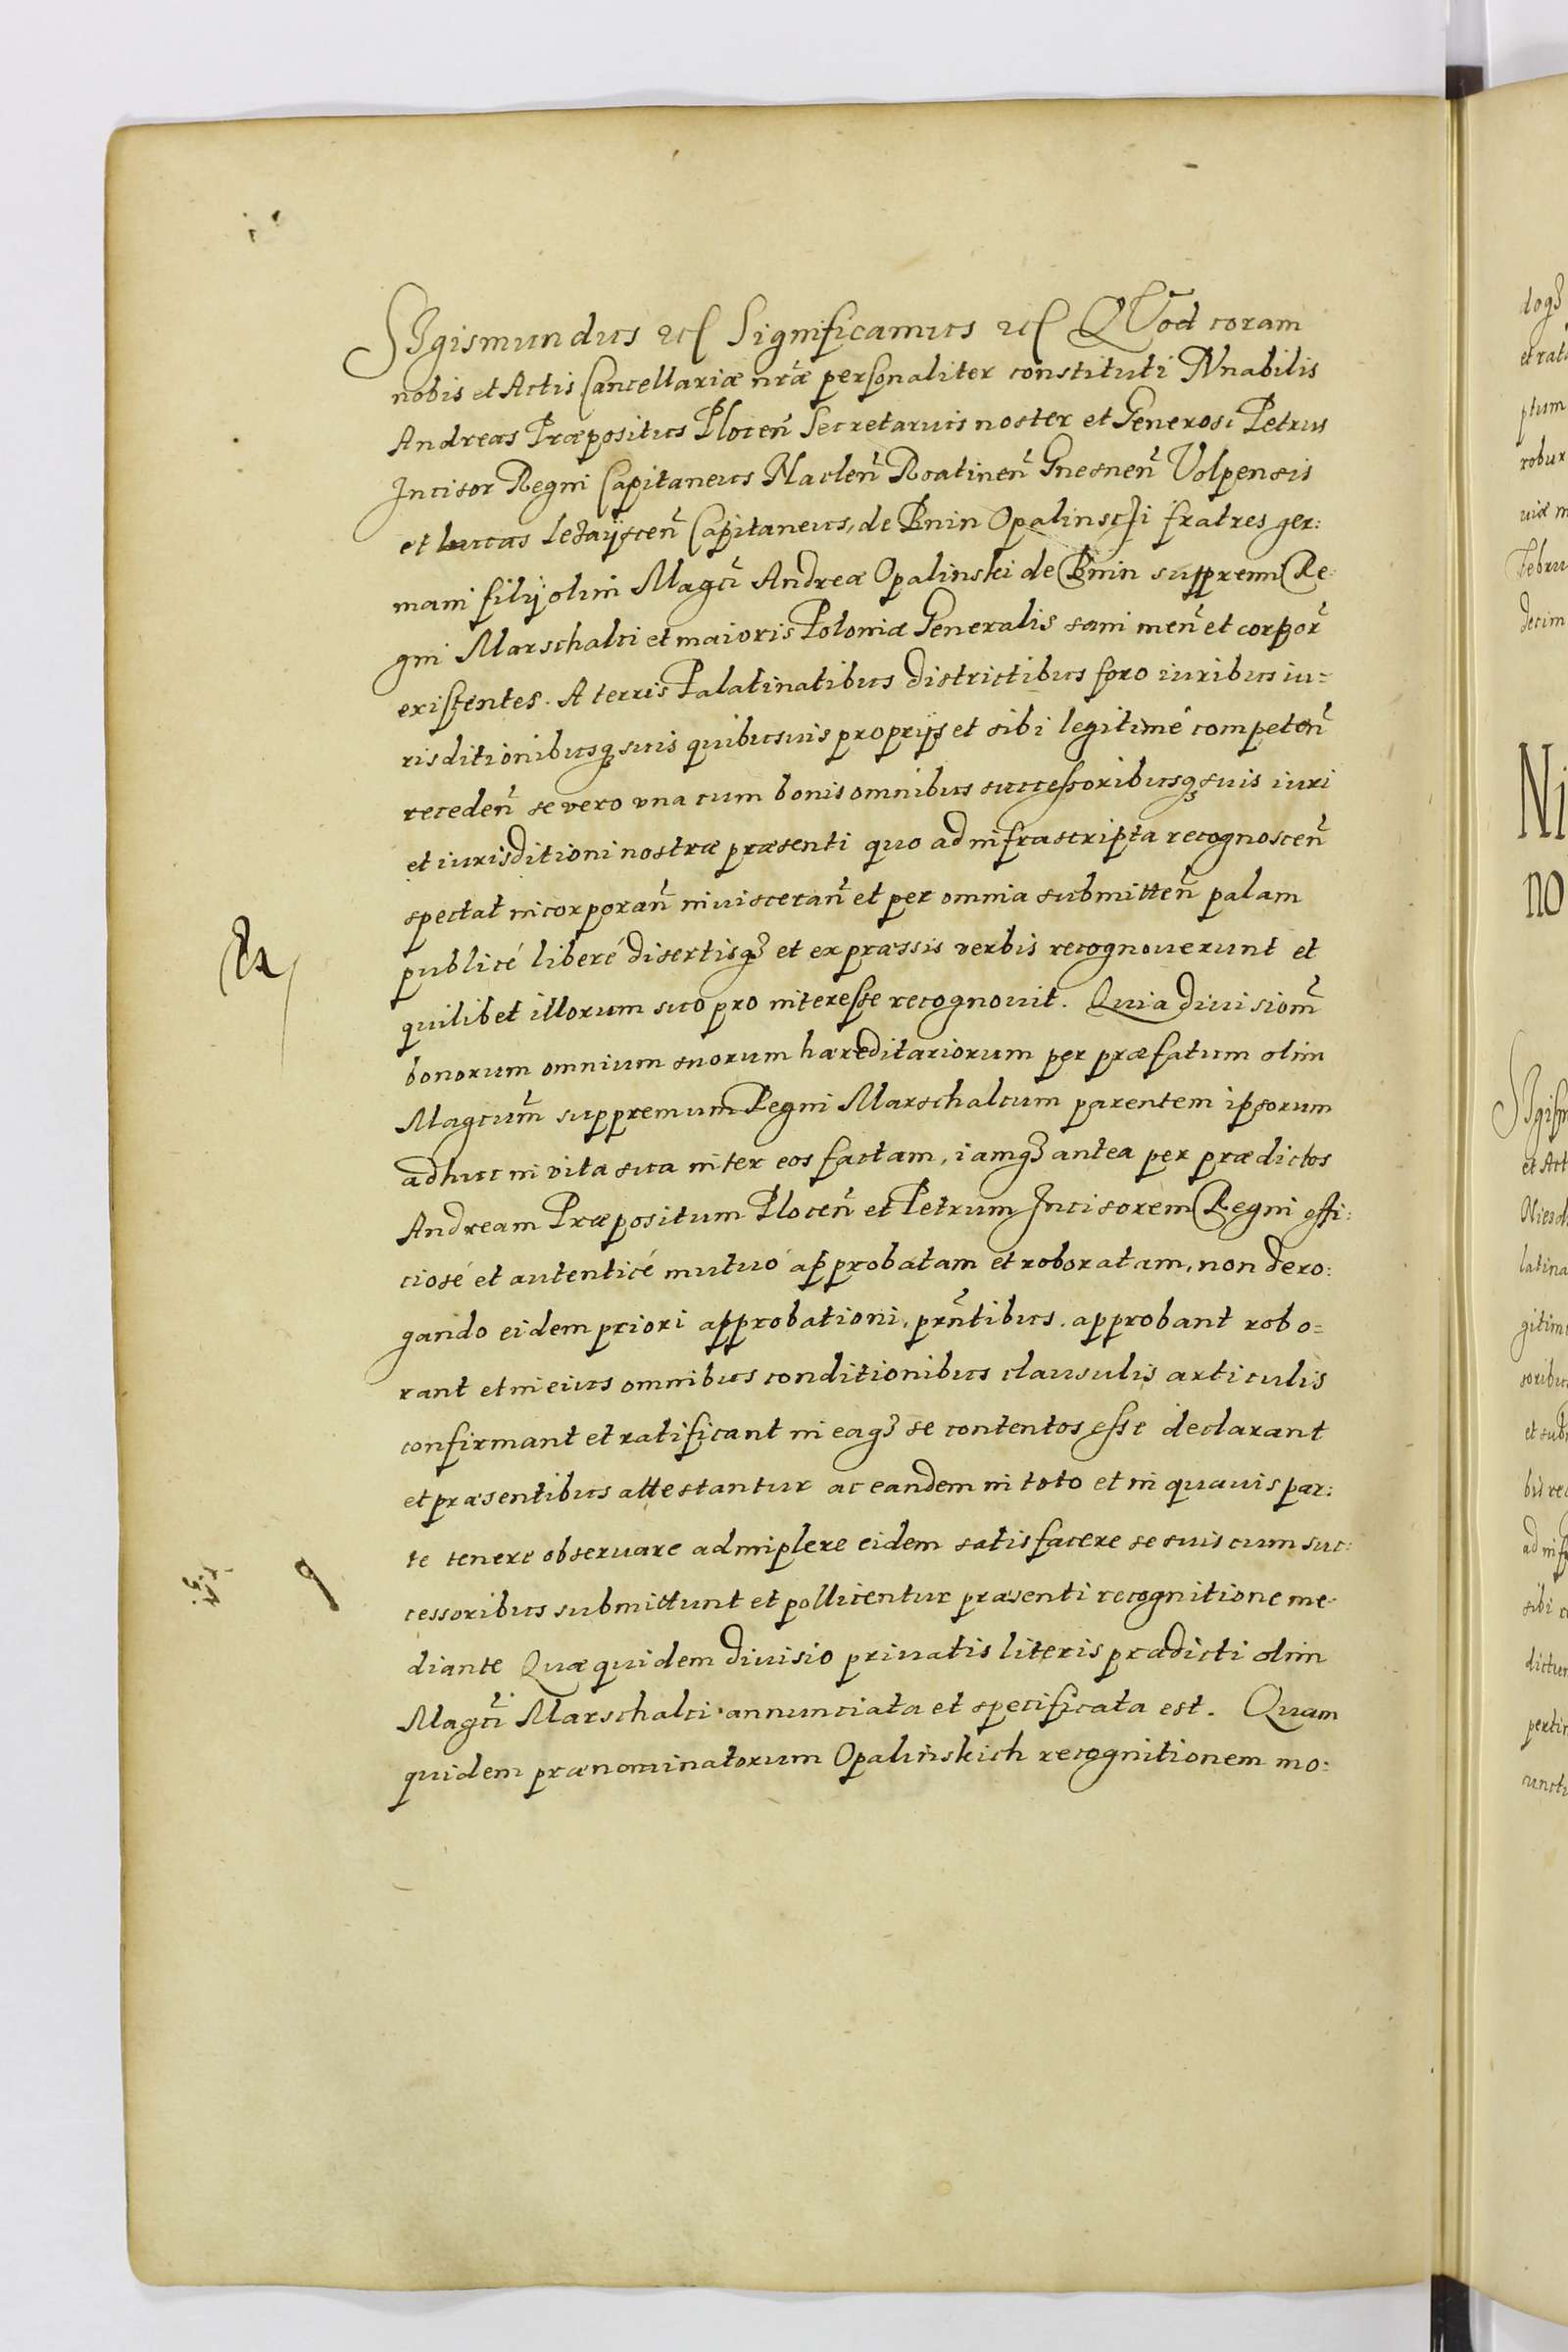 SIgismundus etc Significamus etc QVod coram
nobis et Actis Cancellariæ nr̃æ personaliter constituti Vn̄abilis
Andreas Præpositus Plocen̄ Secretarius noster et Generosi Petrus
Incisor Regni Capitaneus Naclen̄ Roatinen̄ Gnesnen̄ Volpensis
et Lucas Lezayscen̄ Capitaneus, de Bnin Opalinscÿ fratres ger:
mani filij olim Magc̄i Andreæ Opalinski de Bnin suppremi Re:
gni Marschalci et maioris Poloniæ Generalis sani men̄ et corpor̄
existentes. A terris Palatinatibus districtibus foro iuribus iu=
risditionibusq; suis quibusuis proprijs et sibi legitimé competen̄
receden̄ se vero vna cum bonis omnibus successoribusq; suis iuri
et iurisditioni nostræ præsenti quo ad infrascripta recognoscen̄
spectat incorporan̄ inuisceran̄ et per omnia submitten̄ palam
publicé liberé disertisq; et expræssis verbis recognouerunt et
quilibet illorum suo pro interesse recognouit. Quia diuisiom̄
bonorum omnium suorum hæreditariorum per præfatum olim
Magcum̄ suppremum Regni Marschalcum parentem ipsorum
adhuc in vita sua inter eos factam, iamq; antea per prædictos
Andream Præpositum Plocen̄ et Petrum Incisorem Regni offi:
ciosé et autenticé mutuó approbatam et roboratam, non dero:
gando eidem priori approbationi, prn̄tibus. approbant robo=
rant et in eius omnibus conditionibus clausulis articulis
confirmant et ratificant in eaq; se contentos esse declarant
et præsentibus attestantur ac eandem in toto et in quauis par:
te tenere obseruare adimplere eidem satisfacere se suis cum suc:
cessoribus submittunt et pollicentur præsenti recognitione me
diante Quæ quidem diuisio priuatis literis prædicti olim
Magc̄i Marschalci annunciata et specificata est. Quam
quidem prænominatorum Opalinskich recognitionem mo: